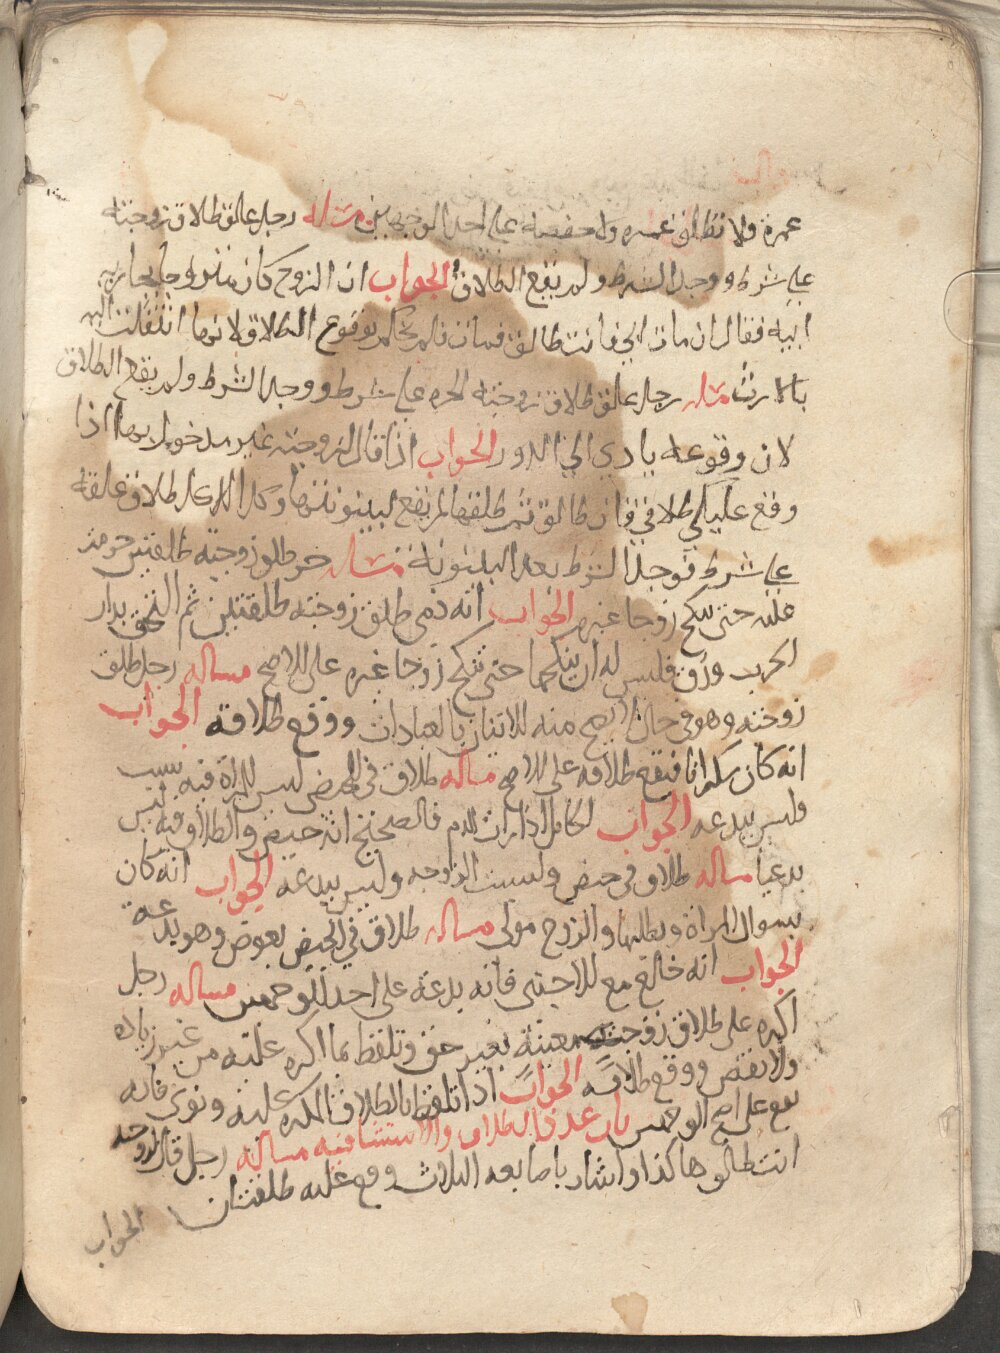 عمرة ولا تطلق عمره ولا حفصه على احد الوجهين مساله رجل علق طلاق زوجته
على شرط ووجد الشرط ولم يقع الطلاق الجواب ان الزوج كان متزوجا بجارية
ابيه فقال ان مات ابي فانت طالق فمات فلم يحكم بوقوع الطلاق لانها انتقلت اليه
بالارث مساله رجل علق طلاق زوجته الحره على شرط ووجد الشرط ولم يقع الطلاق
لان وقوعه يادي الي الدور الجواب اذا قال لزوجته غير مدخول بها اذا
وقع عليكي طلاقي فانت طالق ثم طلقها لم يقع لبينونتها وكذا اللاكل طلاق علقه
على شرط فوجد الشرط بعد البينونة مساله حر طلق زوجته طلقتين حرمت
عليه حتى تنكح زوجا غيره الجواب انه ذمي طلق زوجته طلقتين ثم التحق بدار
الحرب ورق فليس له ان ينكحها حتى تنكح زوجا غيره على الاصح مساله رجل طلق
زوجته وهو في حال لا يصح منه الاتيان بالعبادات ووقع طلاقه الجواب
انه كان سكرانا فيقع طلاقه على الاصح مساله طلاق في الحيض ليس للمراة فيه سبب
وليس ببدعه الجواب لكامل اذا رات الدم فالصحيح انه حيض والطلاق فيه ليس
بدعيا مساله طلاق في حيض وليست الزوجه وليس ببدعه الجواب انه كان
بسوال المراة وبطلبها والزوج مولى مساله طلاق في الحيض بعوض وهو بدعة
الجواب انه خالع مع الاجنبي فانه بدعة على احد الوجهين مساله رجل
اكره على طلاق زوجته معينة بغير حق وتلفظ بما اكره عليه من غير زياده
ولا نقص ووقع طلاقه الجواب اذا تلفظ بالطلاق المكره عليه ونوى فانه
يقع على اصح الوجهين باب عدد الطلاق والاستثنا فيه مساله رجل قال لزوجته
انت طالق هاكذا واشار باصابعه الثلاث وقع عليه طلقتان
الجواب